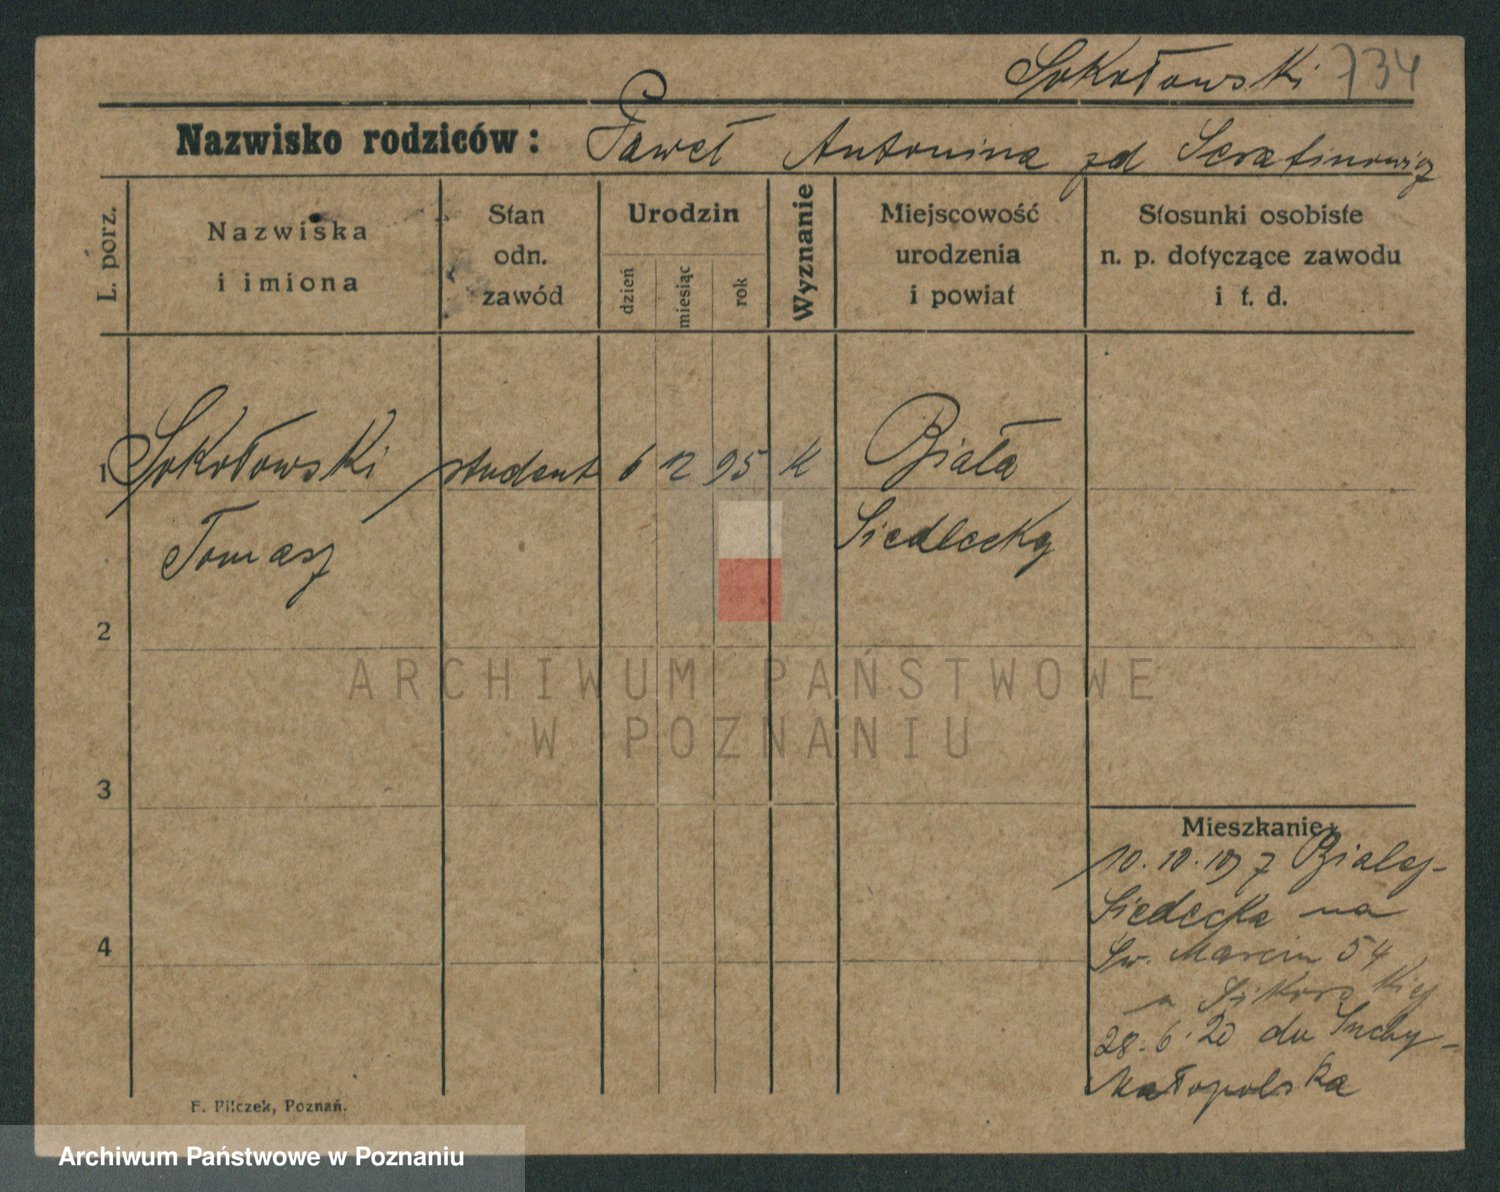 Sokołowski 734
Nazwisko rodziców: Paweł Antonina zd Serafinowicz
L. porz.
Nazwiska
i imiona
Stan
odn.
zawód
Urodzin
dzień
miesiąc
rok
Wyznanie
Miejscowość
urodzenia
i powiat
Stosunki osobiste
n. p. dotyczące zawodu
i t. d.
1 Sokołowski student 6 12 95 K Biała
Tomasz Siedlecka
2
3
4
Mieszkanie:
10.12.19 z Bialej-
Siedlecka na
Św. Marcin 54
u Sikorskiej
28.6.20 do Suchy-
Małopolska
F. Pilczek, Poznań.
ARCHIWUM PAŃSTWOWE
W POZNANIU
Archiwum Państwowe w Poznaniu